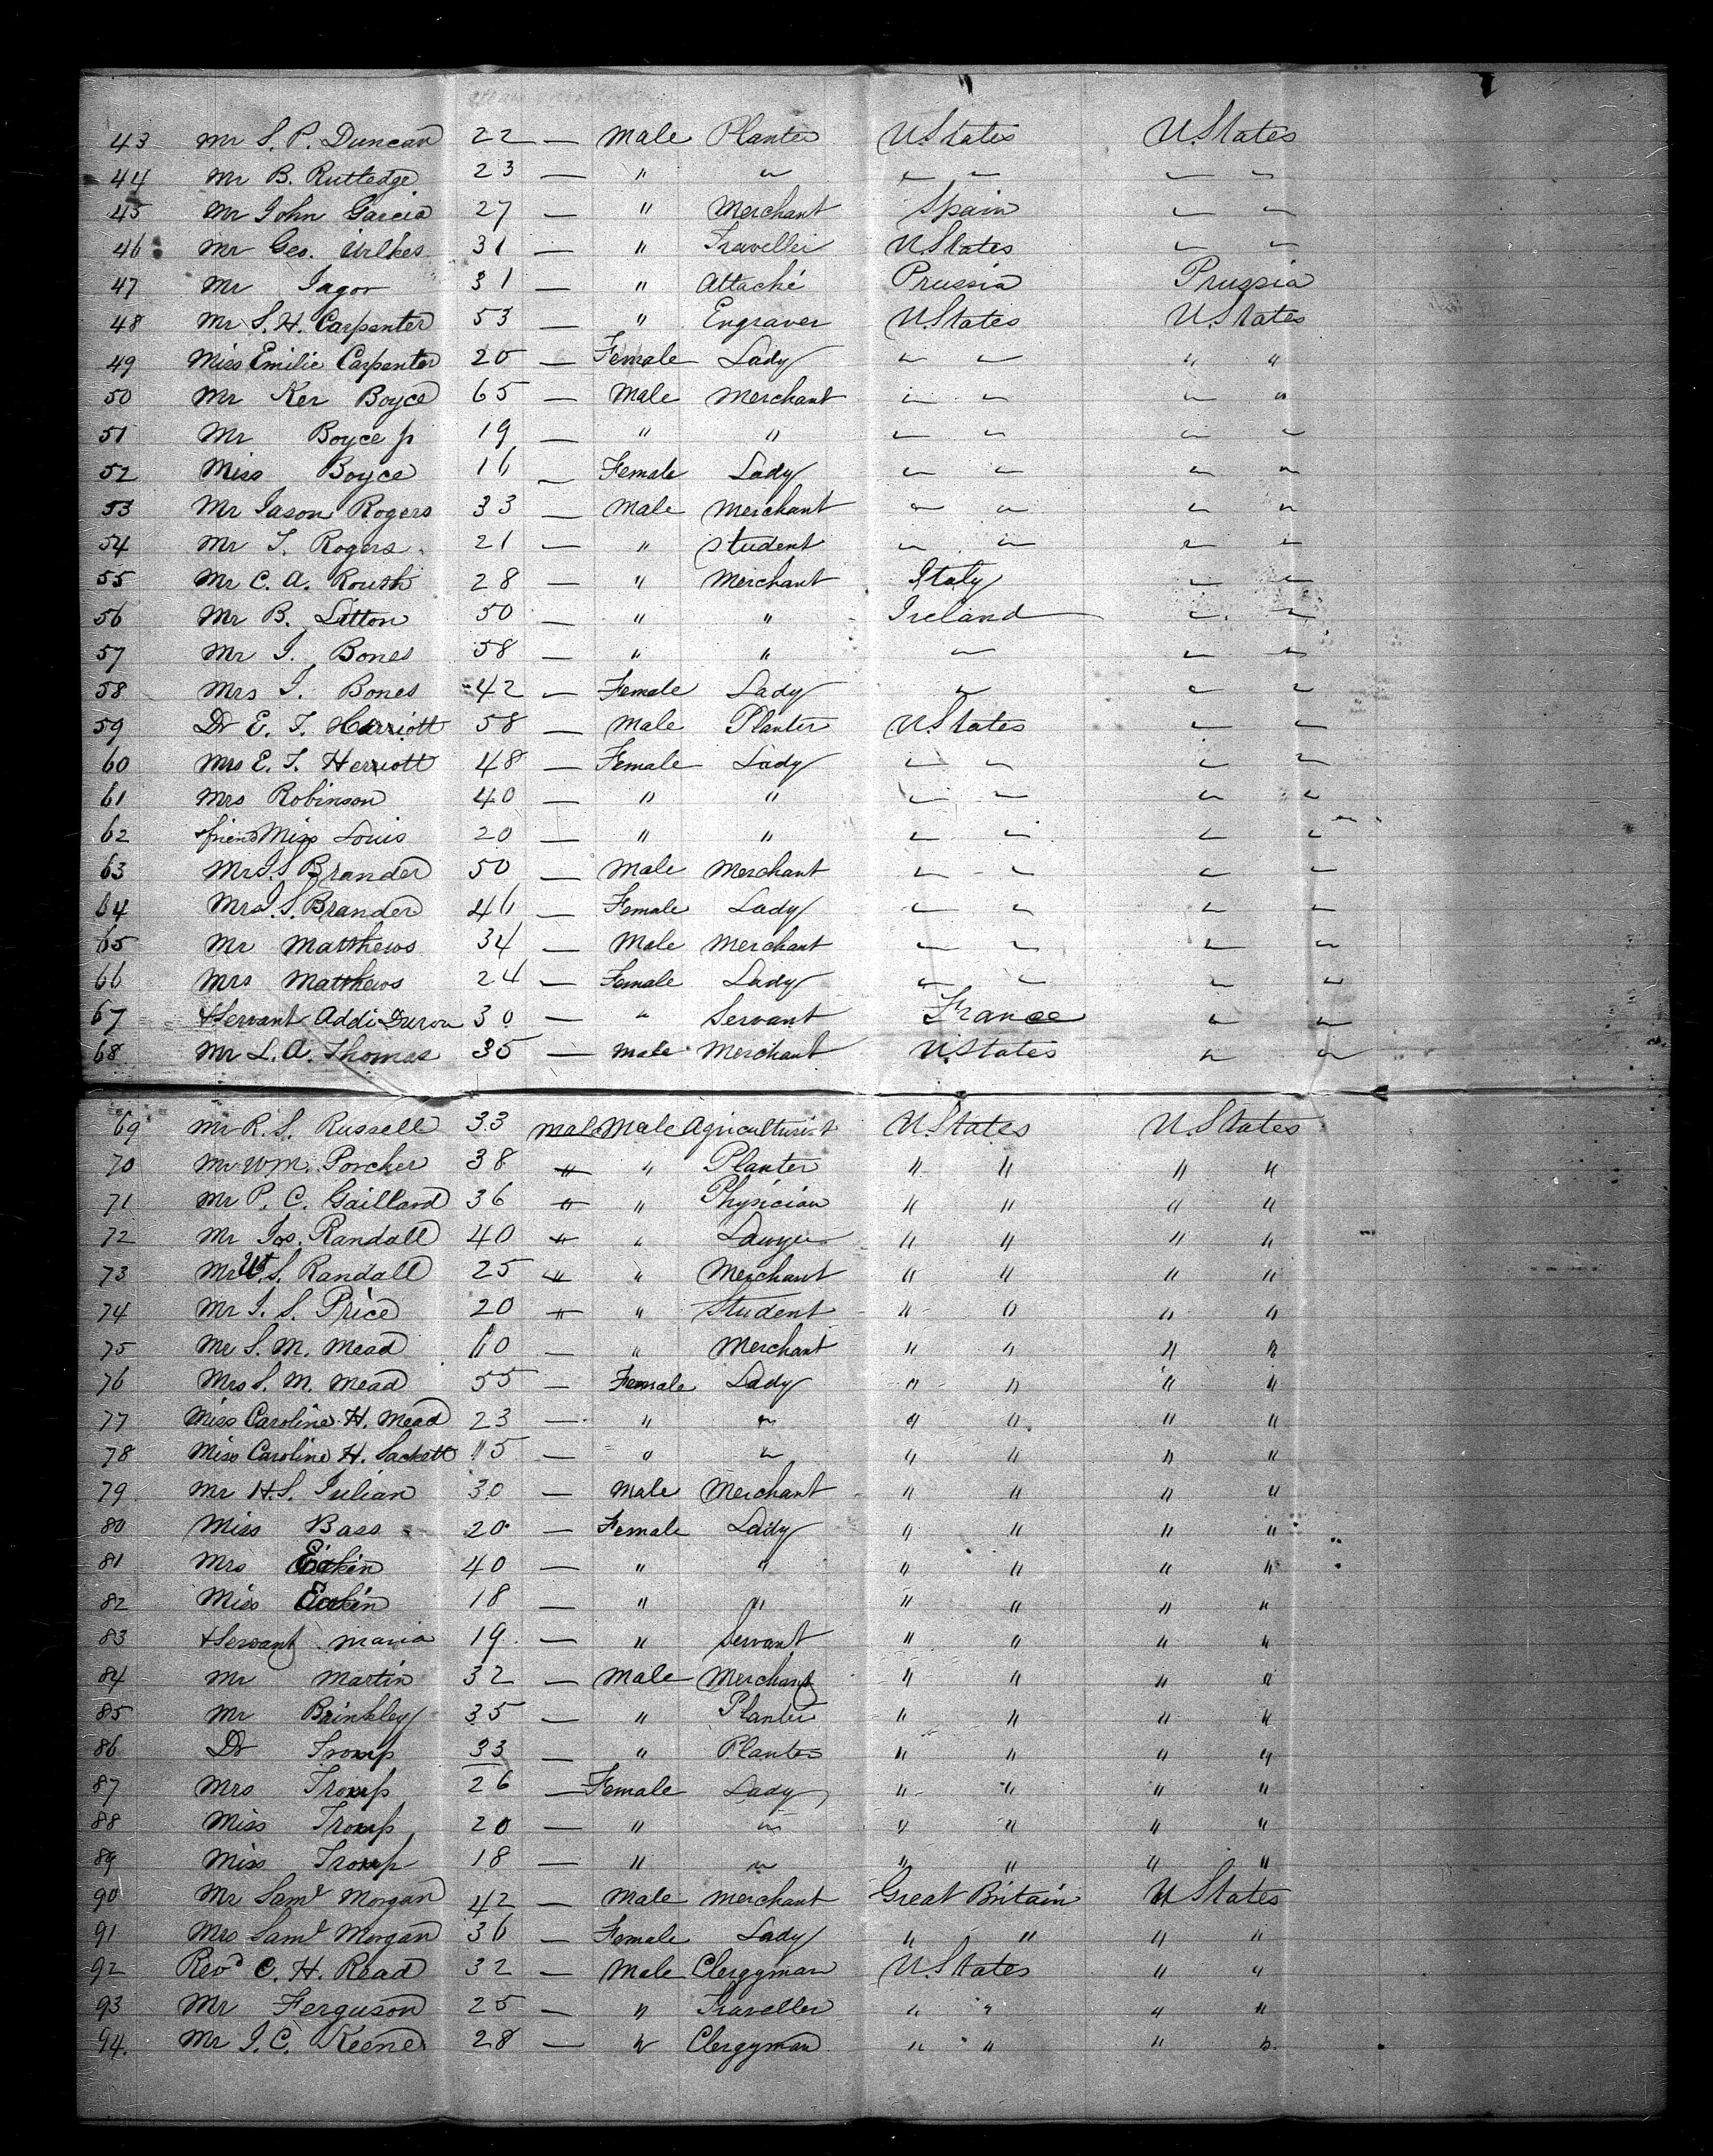 43 Mr S. P. Duncan 22 — Male Planter U.States U.States
44 Mr B. Rutledge 23 — " " " " " "
45 Mr John Garcia 27 — " Merchant Spain " "
46 Mr Geo. Wilkes 31 — " Traveller U.States " "
47 Mr Jagor 31 — " Attaché Prussia Prussia
48 Mr S. H. Carpenter 53 — " Engraver U.States U.States
49 Miss Emilie Carpenter 20 — Female Lady " " " "
50 Mr Ker Boyce 65 — Male Merchant " " " "
51 Mr Boyce jr 19 — " " " " " "
52 Miss Boyce 16 — Female Lady " " " "
53 Mr Jason Rogers 33 — Male Merchant " " " "
54 Mr T. Rogers 21 — " Student " " " "
55 Mr C. A. Routh 28 — " Merchant Italy " "
56 Mr B. Litton 50 — " " Ireland " "
57 Mr J. Bones 58 — " " " " "
58 Mrs J. Bones 42 — Female Lady " " "
59 Dr E. T. Herriott 58 — Male Planter U.States " "
60 Mrs E. T. Herriott 48 — Female Lady " " " "
61 Mrs Robinson 40 — " " " " " "
62 & friend Miss Louis 20 — " " " " " "
63 Mr J. S. Brander 50 — Male Merchant " " " "
64 Mrs J. S. Brander 46 — Female Lady " " " "
65 Mr Matthews 34 — Male Merchant " " " "
66 Mrs Matthews 24 — Female Lady " " " "
67 & Servant Addi 30 — " Servant France " "
68 Mr L. A. Thomas 35 — Male Merchant U.States " "
69 Mr R. S. Russell 33 Male Male Agriculturist U.States U.States
70 Mr Wm. Porcher 38 " " Planter " " " "
71 Mr P. C. Gaillard 36 " " Physician " " " "
72 Mr Jos. Randall 40 " " Lawyer " " " "
73 Mr W. S. Randall 25 " " Merchant " " " "
74 Mr J. S. Price 20 " " Student " " " "
75 Mr S. M. Mead 60 — " Merchant " " " "
76 Mrs S. M. Mead 55 — Female Lady " " " "
77 Miss Caroline H. Mead 23 — " " " " " "
78 Miss Caroline H. Sackett 15 — " " " " " "
79 Mr H. S. Julian 30 — Male Merchant " " " "
80 Miss Bass 20 — Female Lady " " " "
81 Mrs Eakin 40 — " " " " " "
82 Miss Eakin 18 — " " " " " "
83 & Servant Maria 19 — " Servant " " " "
84 Mr Martin 32 — Male Merchant " " " "
85 Mr Brinkley 35 — " Planter " " " "
86 Dr Troup 33 — " Planter " " " "
87 Mrs Troup 26 — Female Lady " " " "
88 Miss Troup 20 — " " " " " "
89 Miss Troup 18 — " " " " " "
90 Mr Saml Morgan 42 — Male Merchant Great Britain U States
91 Mrs Saml Morgan 36 — Female Lady " " " "
92 Revd C. H. Read 32 — Male Clergyman U.States " "
93 Mr Ferguson 25 — " Traveller " " " "
94. Mr J. C. Keene 28 — " Clergyman " " " "